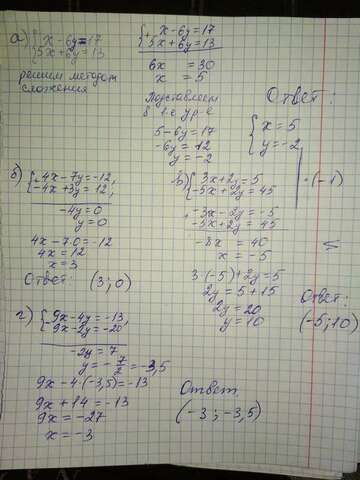 а) { x - 6y = 17
5x + 6y = 13
решим методом
сложения
{ + x - 6y = 17
5x + 6y = 13
6x = 30
x = 5
Подставляем
в 1-е ур-е
5 - 6y = 17
-6y = 12
y = -2
Ответ:
{ x = 5
y = -2
б) { + 4x - 7y = -12,
-4x + 3y = 12,
-4y = 0
y = 0
4x - 7·0 = -12
4x = 12
x = 3
Ответ: (3; 0)
в) { 3x + 2y = 5 | ·(-1)
-5x + 2y = 45
+ -3x - 2y = -5
-5x + 2y = 45
-8x = 40
x = -5
3·(-5) + 2y = 5
2y = 5 + 15
2y = 20
y = 10
Ответ:
(-5; 10)
г) { 9x - 4y = -13,
9x - 2y = -20
-2y = 7
y = -7/2 = -3,5
9x - 4·(-3,5) = -13
9x + 14 = -13
9x = -27
x = -3
Ответ
(-3; -3,5)